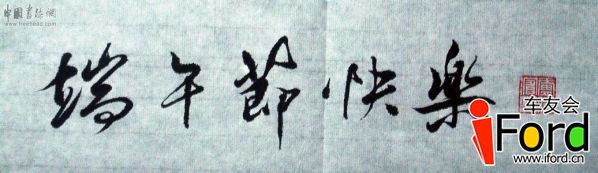 中國書法網
www.freehead.com
端午節快樂
车友会
iFord
www.iford.cn